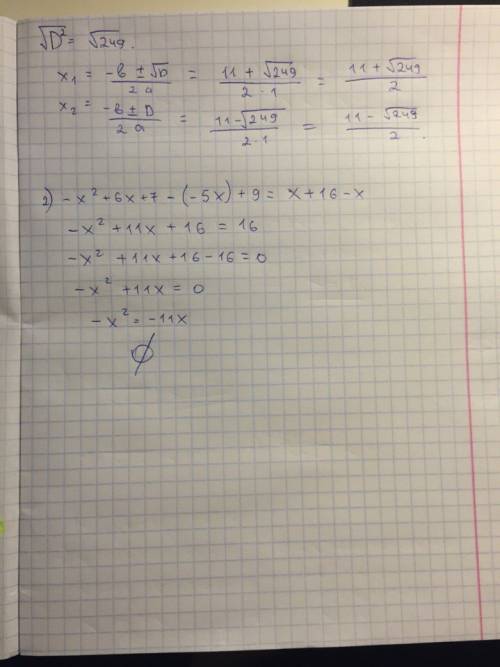 √D² = √249.
x₁ = -b ± √D / 2a = 11 + √249 / 2·1 = 11 + √249 / 2
x₂ = -b ± D / 2a = 11 - √249 / 2·1 = 11 - √249 / 2.
2) -x² + 6x + 7 - (-5x) + 9 = x + 16 - x
-x² + 11x + 16 = 16
-x² + 11x + 16 - 16 = 0
-x² + 11x = 0
-x² = -11x
∅